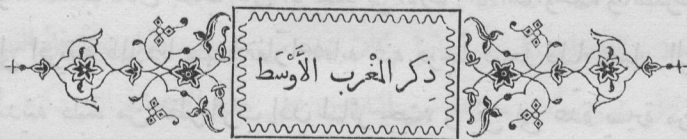 ذِكر المَغْرب الأَوْسَط